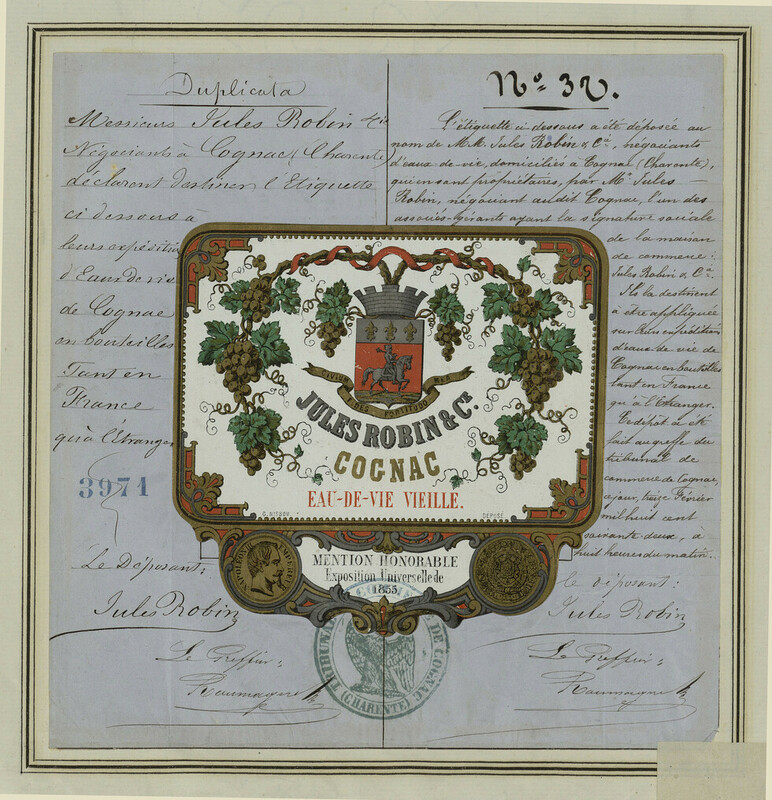 Duplicata
Messieurs Jules Robin & Cie
Négociants à Cognac (Charente)
déclarent destiner l'Etiquette
ci dessous à
leurs expéditions
d'Eaux de vie
de Cognac
en bouteilles
Tant en
France
qu'à l'étranger
3971
Le Déposant:
Jules Robin
Le Greffier:
No. 32.
L'étiquette ci-dessous a été déposée au
nom de M.M. Jules Robin & Cie, négociants
d'eaux-de-vie, domiciliés à Cognac (Charente),
qui en sont propriétaires, par Mr Jules
Robin, négociant audit Cognac, l'un des
associés-gérants ayant la signature sociale
de la maison
de commerce:
Jules Robin & Cie.
Ils la destinent
à être appliquée
sur leurs expéditions
d'eaux-de-vie de
Cognac en bouteilles
tant en France
qu'à l'Etranger.
Ce dépôt a été
fait au greffe du
tribunal de
commerce de Cognac,
ce jour, treize Février
mil huit cent
soixante deux, à
huit heures du matin.
Le déposant:
Jules Robin
Le Greffier:
JULES ROBIN & Cie
COGNAC
EAU-DE-VIE VIEILLE.
DEPOSÉ
MENTION HONORABLE
Exposition Universelle de
1855
NAPOLEON III EMPEREUR
TRIBUNAL DE COMMERCE DE COGNAC
(CHARENTE)